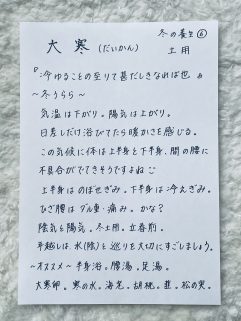 冬の養生⑥
大寒(だいかん) 土用
『冷ゆることの至りて甚だしきなれば也』
～冬うらら～
気温は下がり。陽気は上がり。
日差しだけ浴びてたら暖かさを感じる。
この気候に体は上半身と下半身、間の腰に
不具合がでてきそうですよね
上半身はのぼせぎみ。下半身は冷えぎみ。
ひざ腰はダル重・痛み。かな?
陰気と陽気。冬土用。立春前。
年越しは、水(陰)と巡りを大切にすごしましょう。
～オススメ～半身浴。腰湯。足湯。
大寒卵。寒の水。海老。胡桃。韮。松の実。